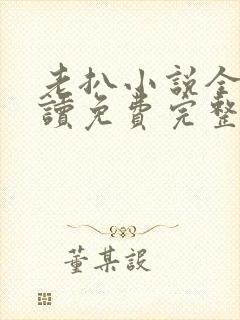 老扒小说全
讀免費完整
董某設